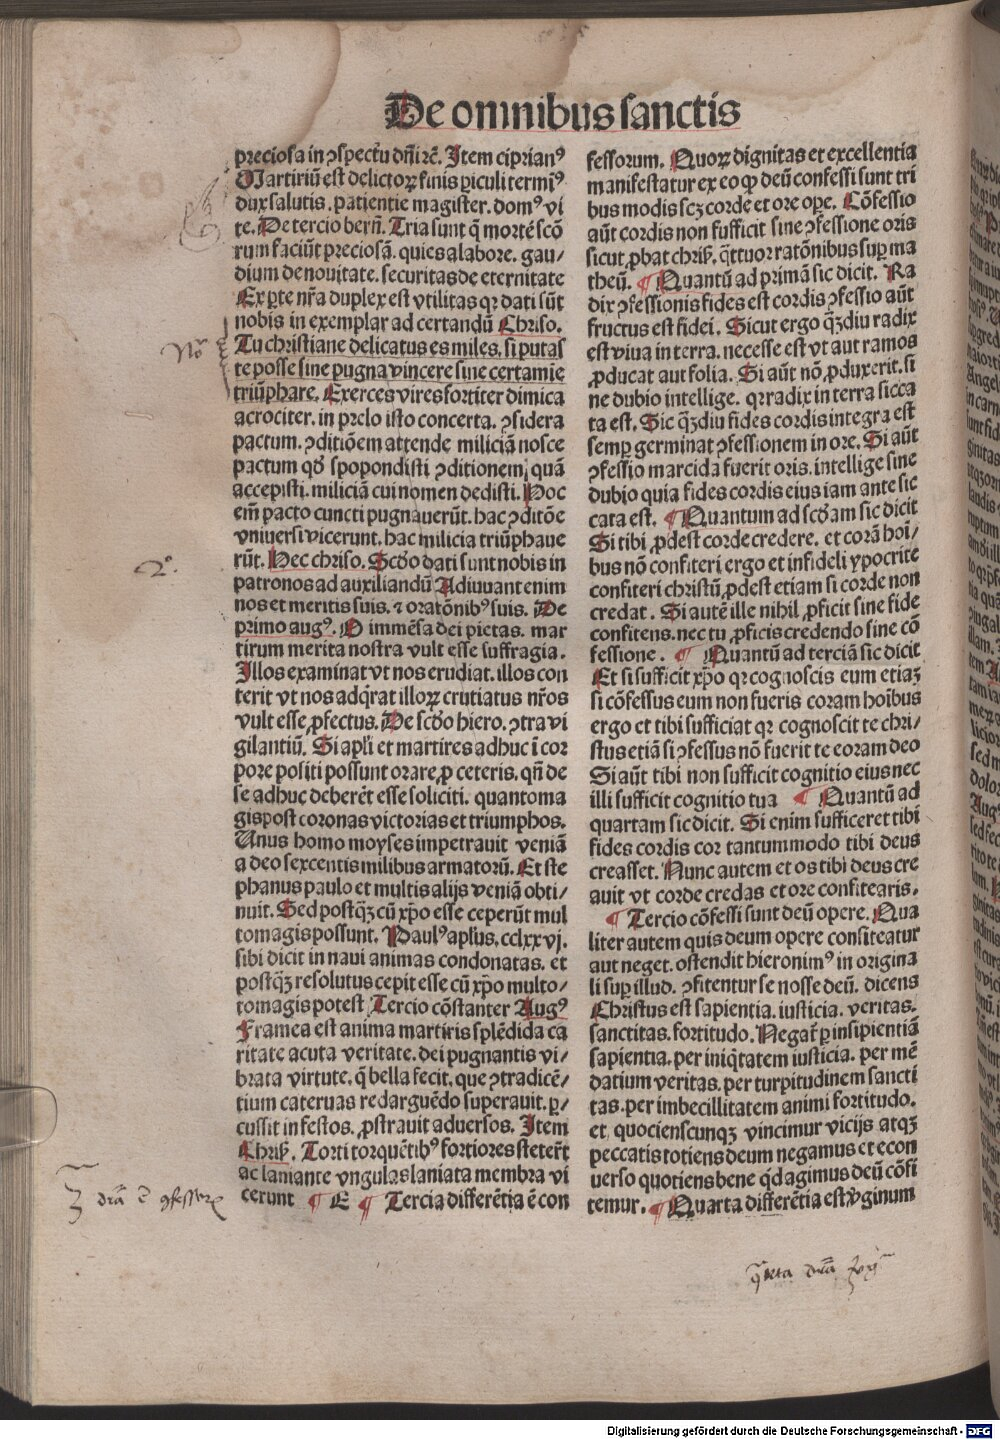 De omnibus sanctis
preciosa in ꝯspectu dñi rē. Item ciprianꝰ
Martiriū est delictoꝝ finis ꝑiculi terminꝰ
dux salutis. patientie magister. domꝰ vi
te. De tercio berñ. Tria sunt q̄ mortē scō
rum faciūt preciosā. quies a labore. gau/
dium de nouitate. securitas de eternitate
Ex ꝑte nr̄a duplex est vtilitas qꝛ dati sūt
nobis in exemplar ad certandū Chriso.
Tu christiane delicatus es miles. si putas
te posse sine pugna vincere sine certamie
triūphare. Exerces vires fortiter dimica
acrociter. in prelo isto concerta. ꝯsidera
pactum. ꝯditiōem attende miliciā nosce
pactum qd̕ spopondisti ꝯditionem quā
accepisti. miliciā cui nomen dedisti. Hoc
em̄ pacto cuncti pugnauerūt. hac ꝯditōe
vniuersi vicerunt. hac milicia triūphaue
rūt. Hec chriso. Scd̕o dati sunt nobis in
patronos ad auxiliandū Adiuuant enim
nos et meritis suis. ⁊ oratōnibꝰ suis. De
primo augꝰ. O immēsa dei pietas. mar
tirum merita nostra vult esse suffragia.
Illos examinat vt nos erudiat. illos con
terit vt nos adq̇rat illoꝝ crutiatus nr̄os
vult esse ꝓfectus. De scd̕o hiero. ꝯtra vi
gilantiū. Si apl̕i et martires adhuc ī cor
pore positi possunt orare ꝓ ceteris. qn̄ de
se adhuc deberēt esse soliciti. quanto ma
gis post coronas victorias et triumphos.
Unus homo moyses impetrauit veniā
a deo sexcentis milibus armatorū. Et ste
phanus paulo et multis alijs veniā obti/
nuit. Sed postq̄ꝫ cū xp̄o esse ceperūt mul
to magis possunt. Paulꝰ apl̕us. cclxxvj.
sibi dicit in naui animas condonatas. et
postq̄ꝫ resolutus cepit esse cū xp̄o multo/
to magis potest Tercio cōstanter Augꝰ
Framea est anima martiris splēdida ca
ritate acuta veritate. dei pugnantis vi/
brata virtute. q̄ bella fecit. que ꝯtradicē/
tium cateruas redarguēdo superauit. ꝑ/
cussit infestos. ꝓstrauit aduersos. Item
Chriẜ. Torti torquētibꝰ fortiores steter̄t
ac laniante vngulas laniata membra vi
cerunt ¶ E ¶ Tercia differētia ē con
fessorum. Quoꝝ dignitas et excellentia
manifestatur ex eo ꝙ deū confessi sunt tri
bus modis scꝫ corde et ore oꝑe. Cōfessio
aūt cordis non sufficit sine ꝯfessione oris
sicut ꝓbat chriẜ. q̄ttuor ratōnibus suꝑ ma
theū. ¶ Quantū ad primā sic dicit. Ra
dix ꝯfessionis fides est cordis ꝯfessio aūt
fructus est fidei. Sicut ergo q̄ꝫdiu radix
est viua in terra. necesse est vt aut ramos
ꝓducat aut folia. Si aūt nō ꝓduxerit. si
ne dubio intellige. qꝛ radix in terra sicca
ta est. Sic q̄ꝫdiu fides cordis integra est
semꝑ germinat ꝯfessionem in ore. Si aūt
ꝯfessio marcida fuerit oris. intellige sine
dubio quia fides cordis eius iam ante sic
cata est. ¶ Quantum ad scd̕am sic dicit
Si tibi ꝓdest corde credere. et corā hoī/
bus nō confiteri ergo et infideli ypocrite
confiteri christū ꝓdest etiam si corde non
credat. Si autē ille nihil ꝓficit sine fide
confitens. nec tu ꝓficis credendo sine cō
fessione. ¶ Quantū ad terciā sic dicit
Et si sufficit xp̄o qꝛ cognoscis eum etiaꝫ
si cōfessus eum non fueris coram hoībus
ergo et tibi sufficiat qꝛ cognoscit te chri/
stus etiā si ꝯfessus nō fuerit te coram deo
Si aūt tibi non sufficit cognitio eius nec
illi sufficit cognitio tua ¶ Quantū ad
quartam sic dicit. Si enim sufficeret tibi
fides cordis cor tantummodo tibi deus
creasset. Nunc autem et os tibi deus cre
auit vt corde credas et ore confitearis.
¶ Tercio cōfessi sunt deū opere. Qua
liter autem quis deum opere confiteatur
aut neget. ostendit hieronimꝰ in origina
li suꝑ illud. ꝯfitentur se nosse deū. dicens
Christus est sapientia. iusticia. veritas.
sanctitas. fortitudo. Negat̄ ꝑ insipientiā
sapientia. per iniq̇tatem iusticia. per mē
datium veritas. per turpitudinem sancti
tas. per imbecillitatem animi fortitudo.
et quocienscunqꝫ vincimur vicijs atqꝫ
peccatis totiens deum negamus et econ
uerso quotiens bene qd̕ agimus deū cōfi
temur. ¶ Quarta differētia est v̕ginum
Nō
2ᵒ.
3 dr̄ā ē ꝯfessoꝝ
q̄rta dr̄ā
Digitalisierung gefördert durch die Deutsche Forschungsgemeinschaft - DFG